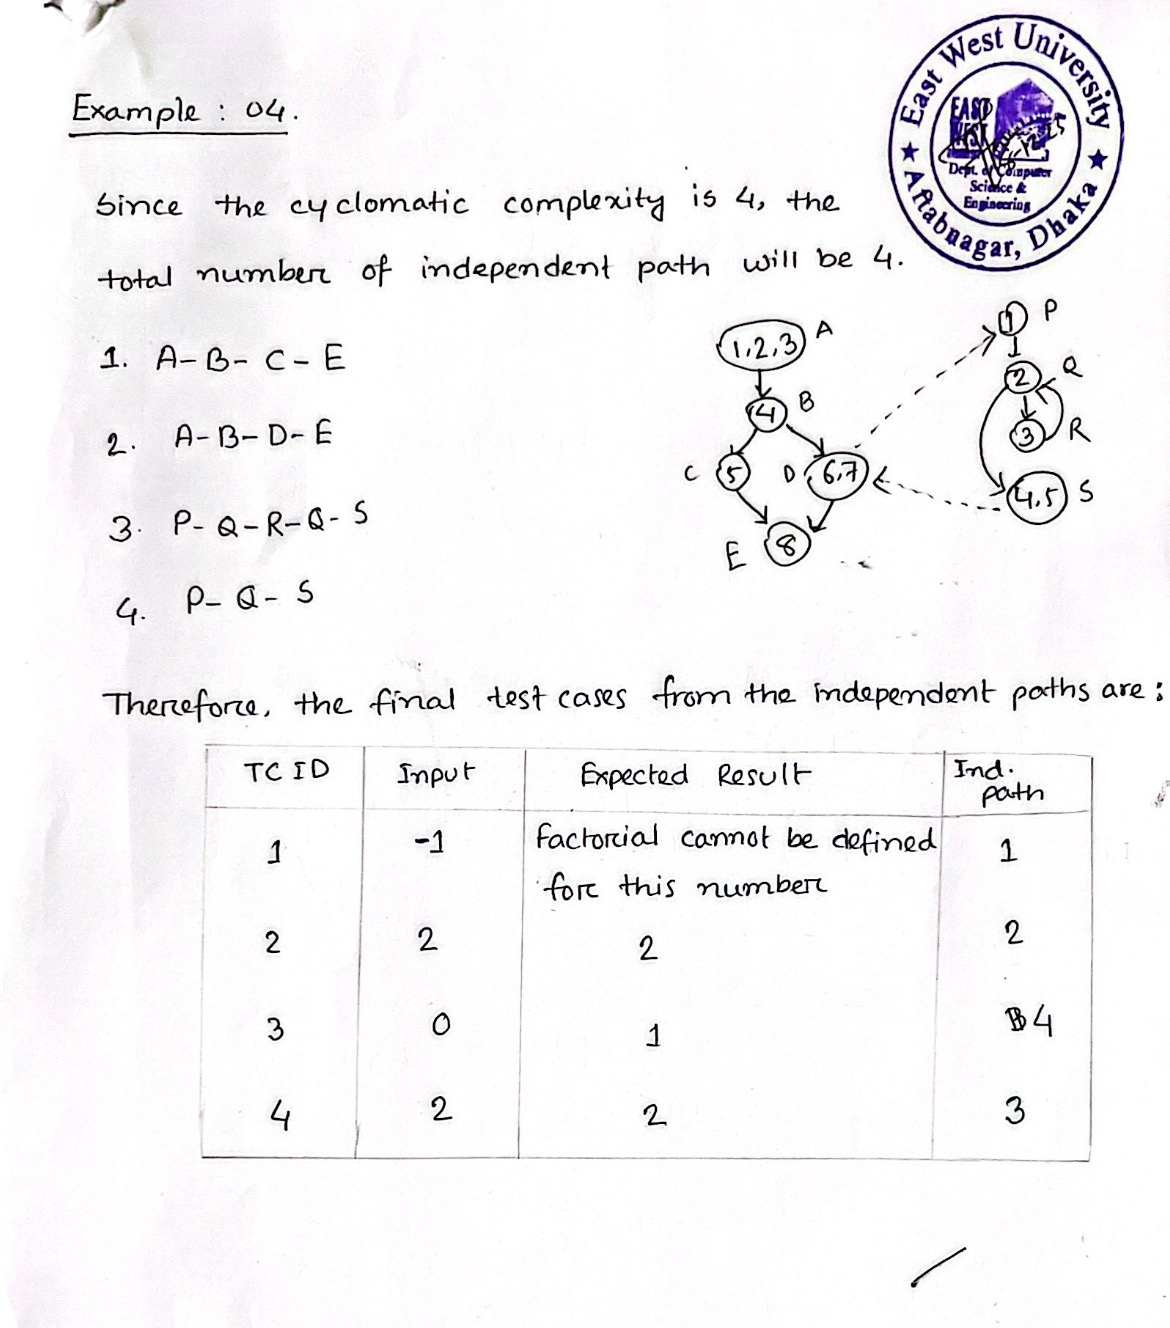 East West University
EAST
WEST
Dept. of Computer
Science &
Engineering
★ Aftabnagar, Dhaka ★
Example : 04.
Since the cyclomatic complexity is 4, the
total number of independent path will be 4.
1. A-B-C-E
2. A-B-D-E
3. P-Q-R-Q-S
4. P-Q-S
1,2,3 A
4 B
C 5
D 6,7
E 8
1 P
2 Q
3 R
4,5 S
Therefore, the final test cases from the independent paths are:
TC ID Input Expected Result Ind. path
1 -1 Factorial cannot be defined 1
for this number
2 2 2 2
3 0 1 4
4 2 2 3